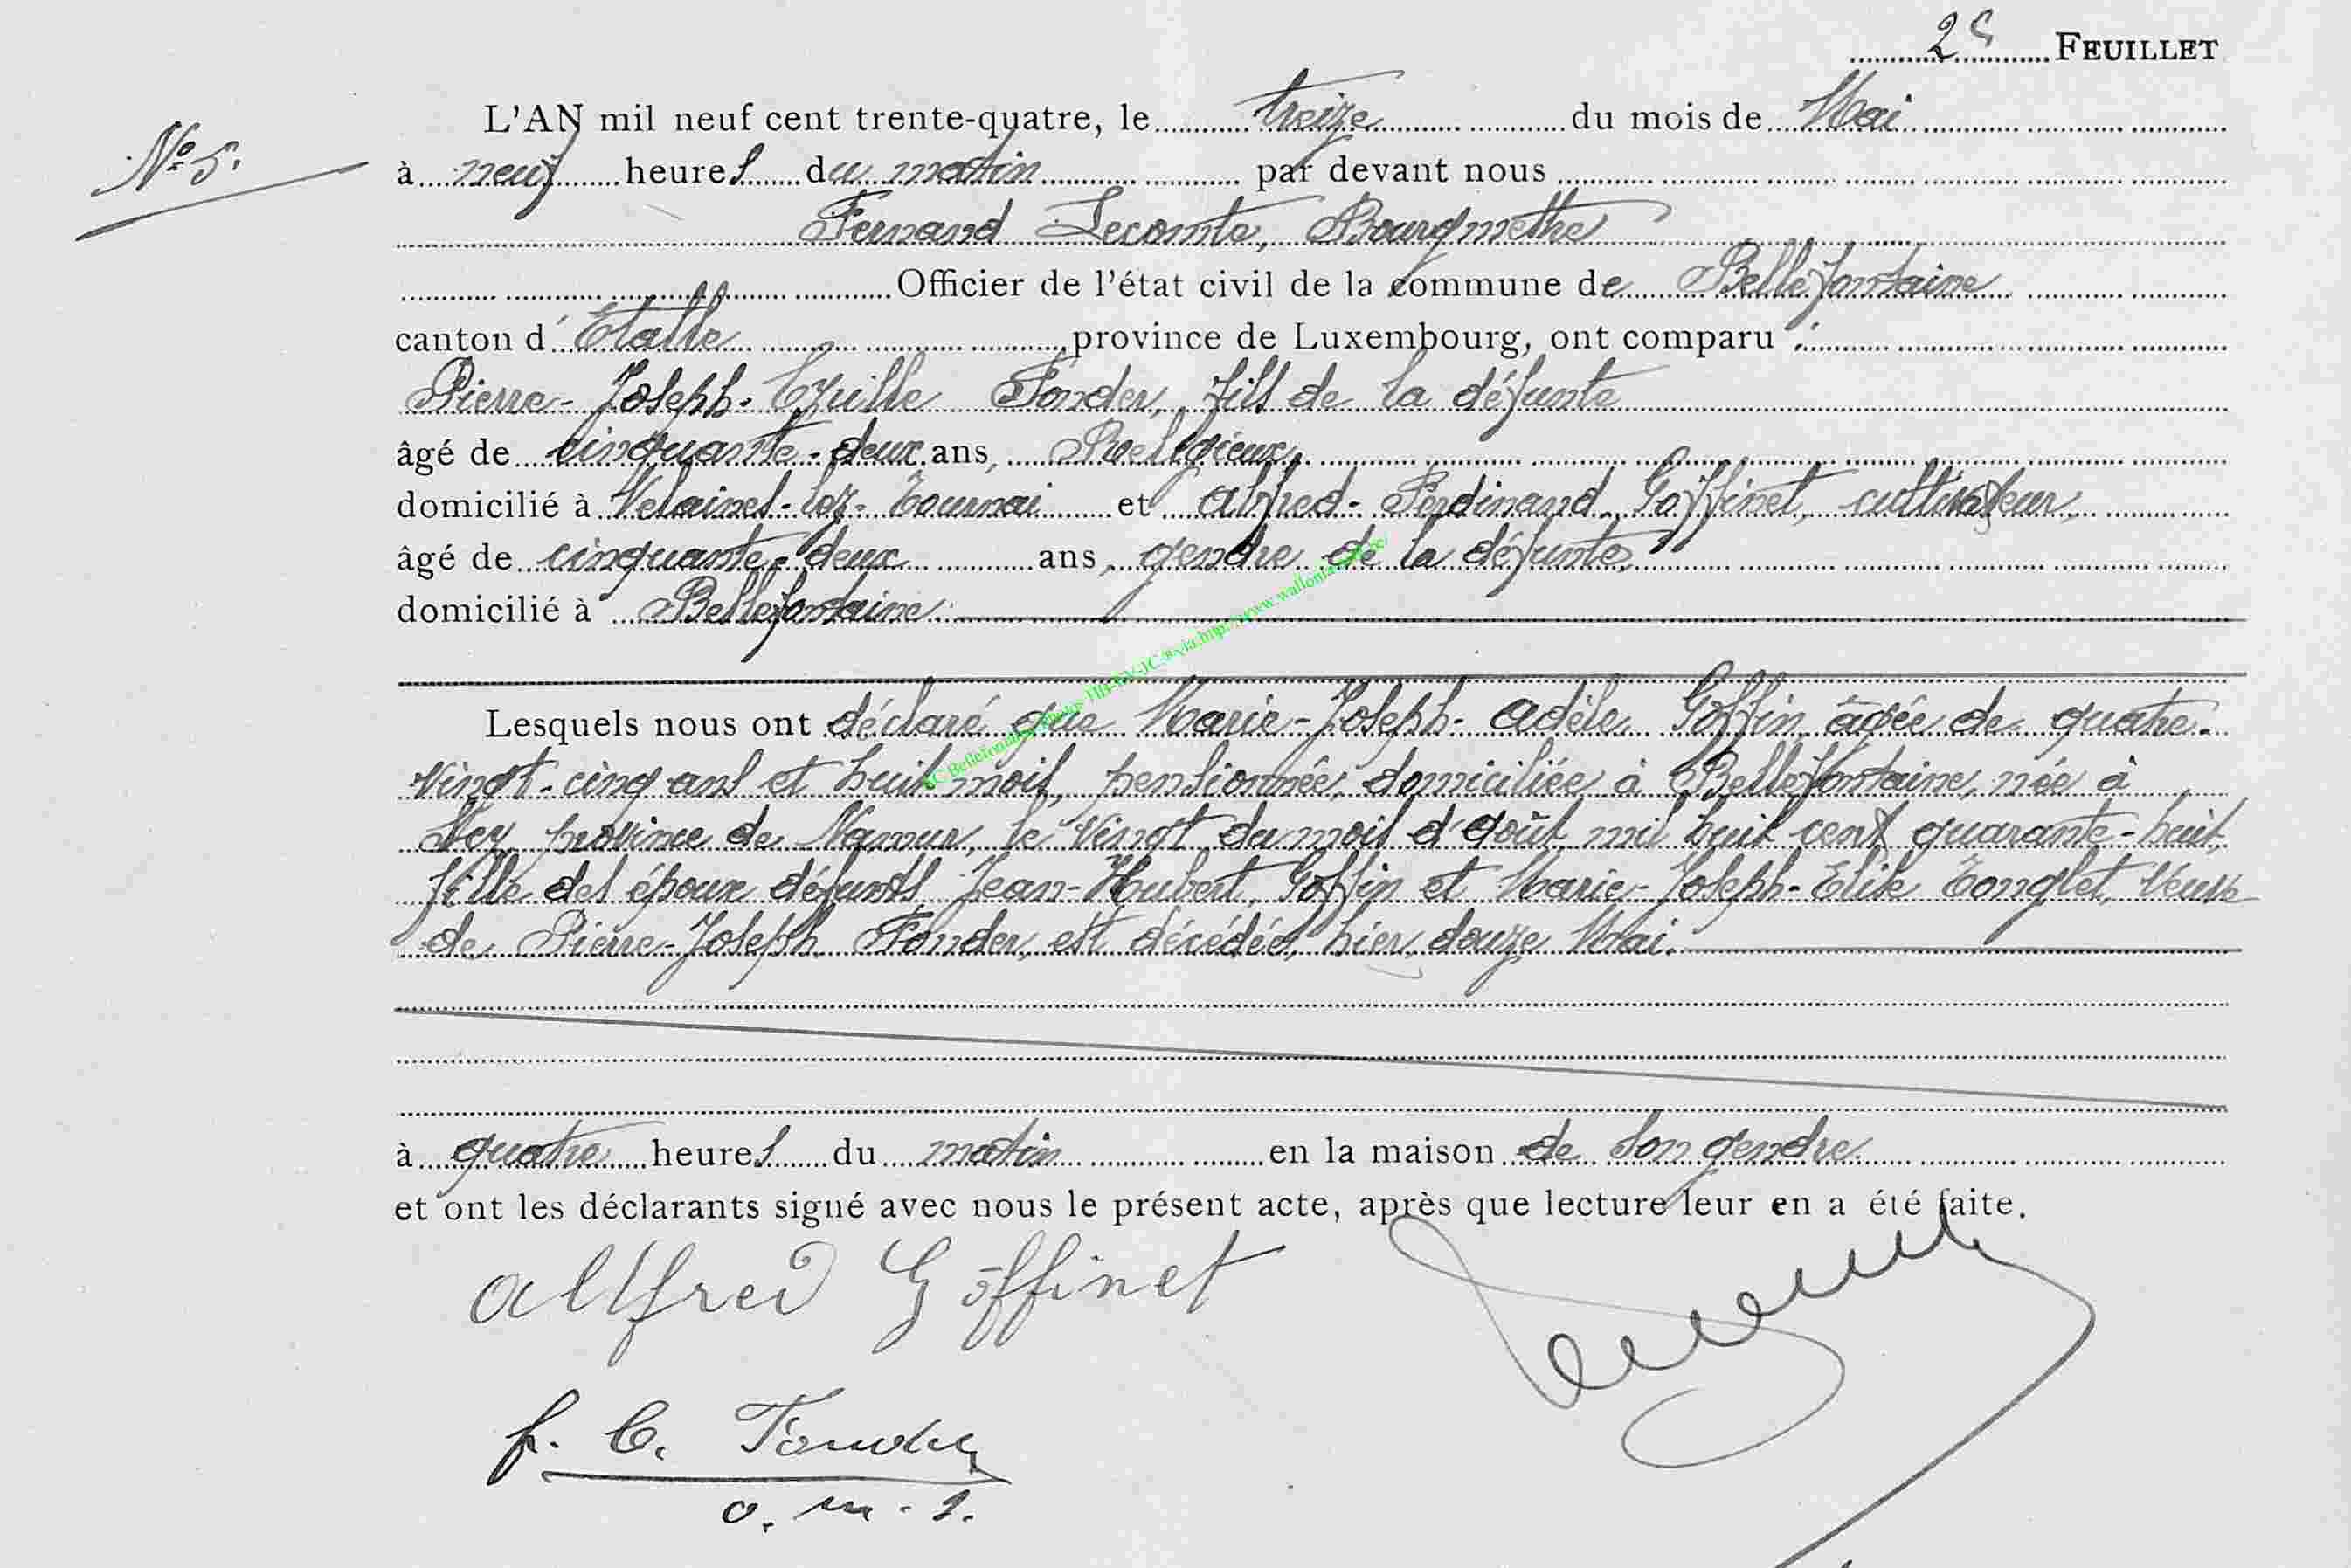 2e FEUILLET
L'AN mil neuf cent trente-quatre, le treize du mois de Mai
N° 5.
à neuf heures du matin par devant nous
Fernand Lecomte, Bourgmestre
Officier de l'état civil de la commune de Bellefontaine
canton d'Etalle province de Luxembourg, ont comparu :
Pierre-Joseph- Fonder, fils de la défunte
âgé de cinquante-deux ans, Religieux,
domicilié à Velaines-lez-Tournai et Alfred-Ferdinand Goffinet, cultivateur,
âgé de cinquante-deux ans, gendre de la défunte,
domicilié à Bellefontaine.
Lesquels nous ont déclaré que Marie-Joseph-Adèle Goffin, âgée de quatre-
vingt-cinq ans et huit mois, pensionnée, domiciliée à Bellefontaine, née à
province de Namur, le vingt du mois d'août mil huit cent quarante-huit,
fille des époux défunts Jean-Hubert Goffin et Marie-Joseph-Elise Tonglet, veuve
de Pierre-Joseph Fonder, est décédée, hier, douze Mai.
à quatre heures du matin en la maison de son gendre
et ont les déclarants signé avec nous le présent acte, après que lecture leur en a été faite.
Allfred Goffinet
p. C. Fonder
o. m. i.